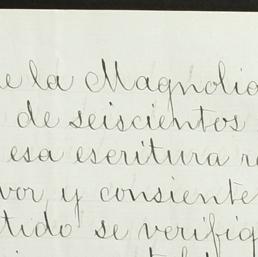 e la Magnolia
de seiscientos
esa escritura re
vor y consiente
tido se verifiq